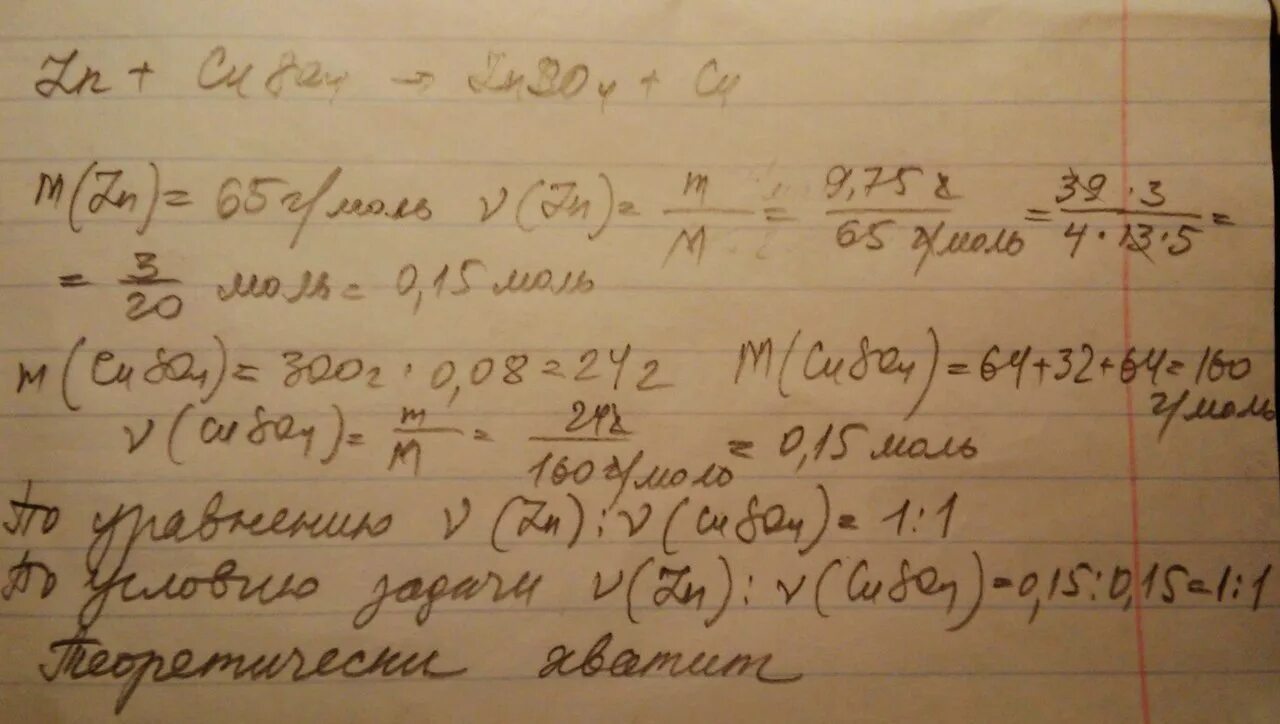 Zn + CuSO₄ → ZnSO₄ + Cu
m(Zn) = 65 г/моль ν(Zn) = m/M = 9,75 г/65 г/моль = 39·3/4·13·5 =
= 3/20 моль = 0,15 моль
m(CuSO₄) = 300г · 0,08 = 24 г M(CuSO₄) = 64+32+64=160 г/моль
ν(CuSO₄) = m/M = 24г/160 г/моль = 0,15 моль
По уравнению ν(Zn) : ν(CuSO₄) = 1:1
По условию задачи ν(Zn) : ν(CuSO₄) = 0,15:0,15=1:1
Теоретически хватит